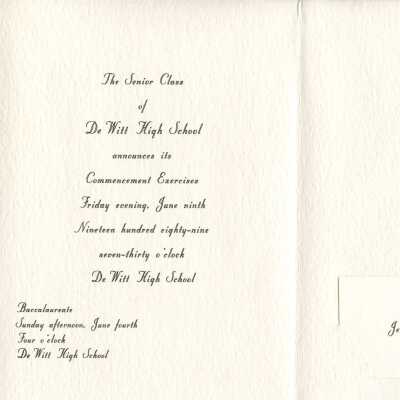 The Senior Class
of
De Witt High School
announces its
Commencement Exercises
Friday evening, June ninth
Nineteen hundred eighty-nine
seven-thirty o'clock
De Witt High School
Baccalaureate
Sunday afternoon, June fourth
Four o'clock
De Witt High School
Je